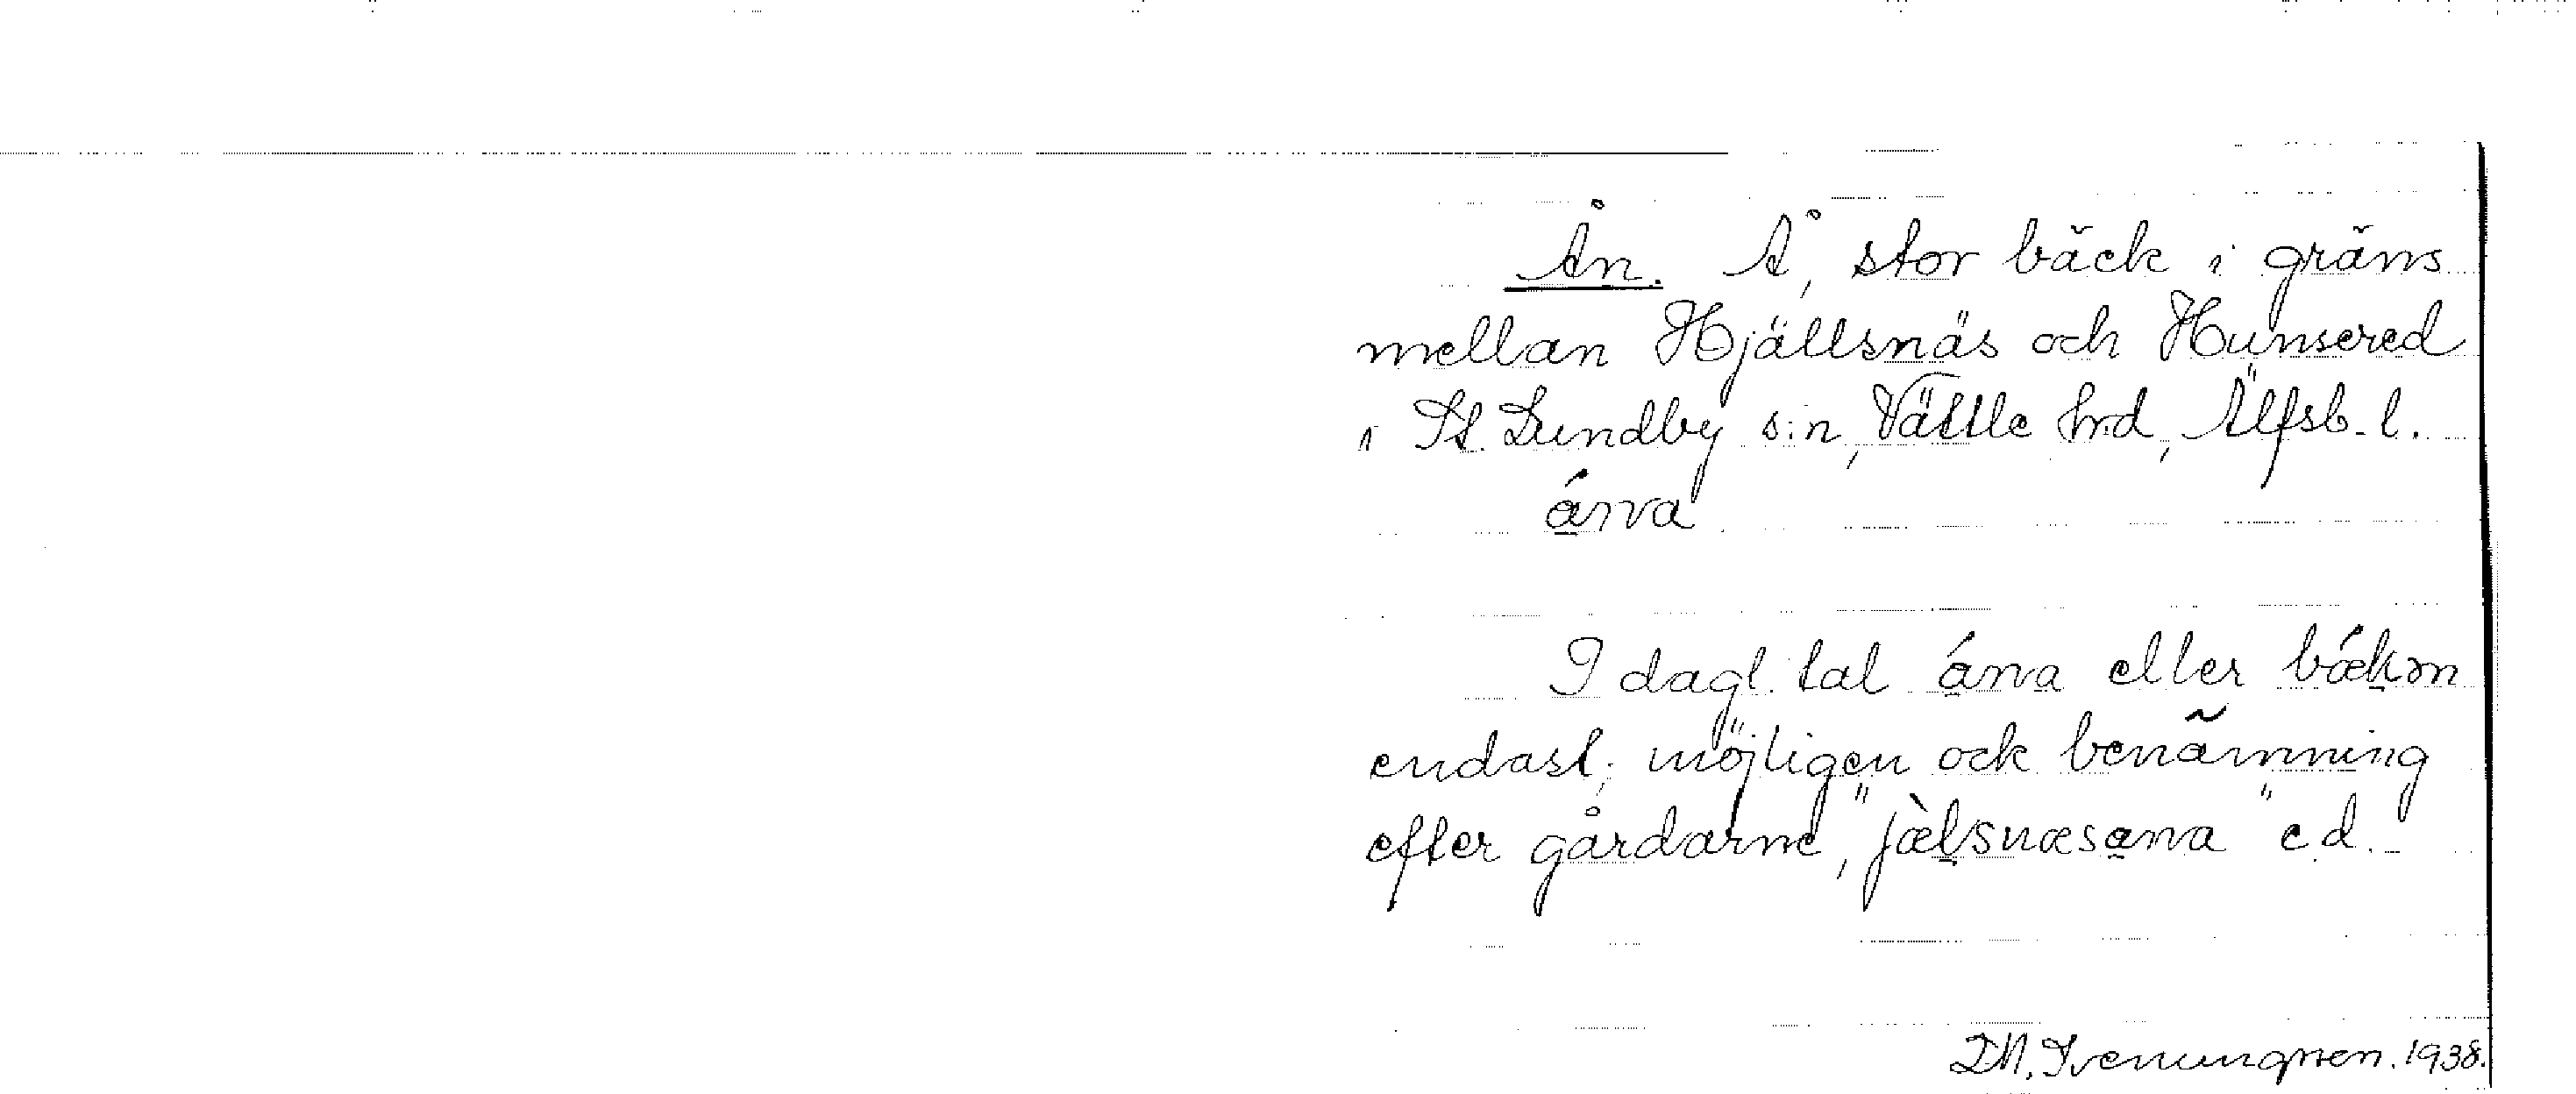 Ån. Å, stor bäck i gräns
mellan Hjällsnäs och Hunsered
i St. Lundby s:n, Vättle hrd, Älfsb. l.
ána
I dagl. tal ána eller bǽkən
endast; möjligen ock benämning
efter gårdarne, "jæ̀lsnæsana" e.d.
D.N. Svenungsen. 1938.